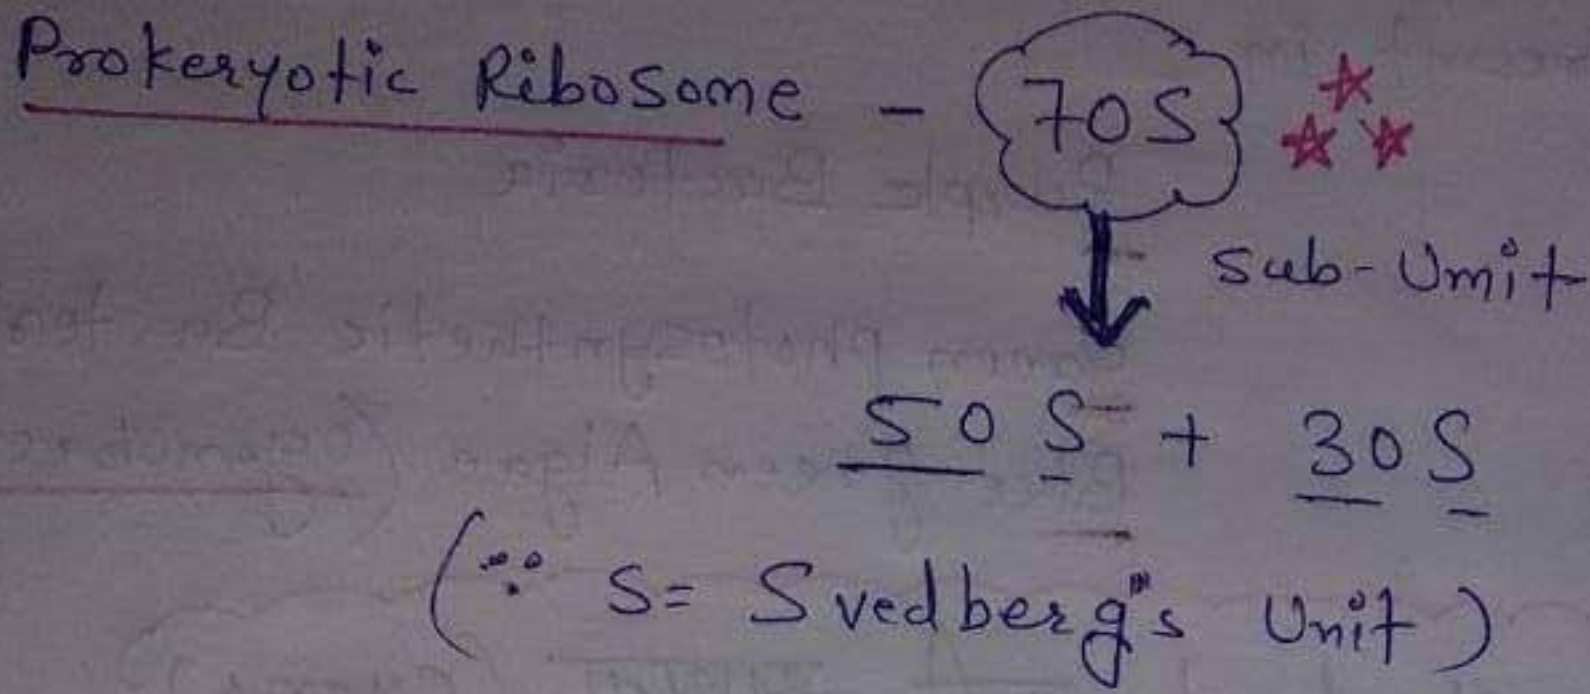 Prokeryotic Ribosome - 70S
Sub-Unit
50 S + 30 S
(∵ S = Svedberg's Unit)